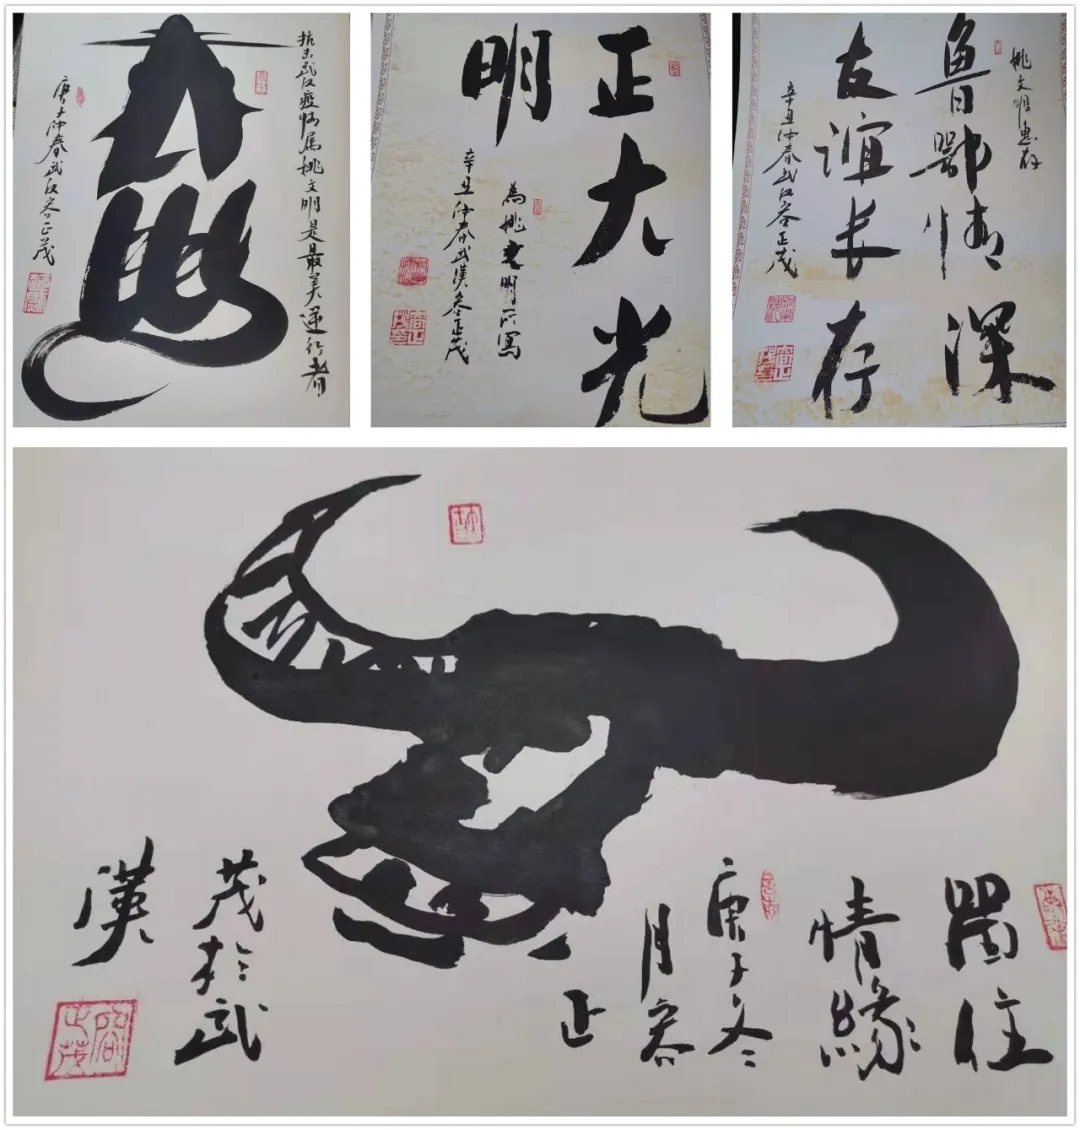 抗击武汉疫情属姚文明是最美逆行者
庚子仲春武汉容正茂
正大光
明
為姚文明所寫
辛丑仲春武漢容正茂
姚文明惠存
鲁鄂情深
友谊长存
辛丑仲春武汉容正茂
住
情緣
庚子冬
月容
正
茂於武
漢